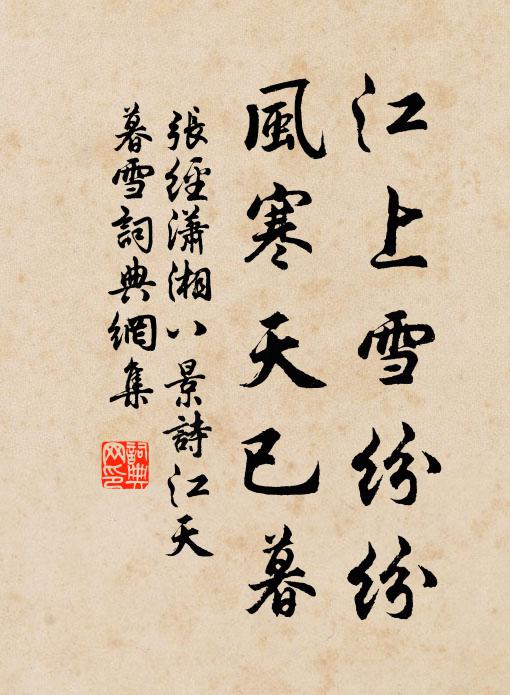 江上雪紛紛
風寒天已暮
張經瀟湘八景詩江天
暮雪詞典網集
詞典網印